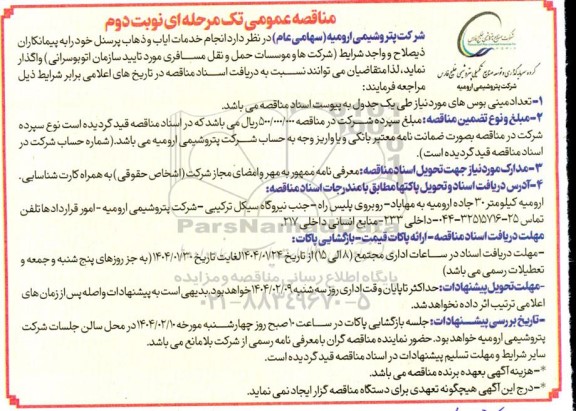 مناقصه عمومی تک مرحله ای نوبت دوم
شرکت پتروشیمی ارومیه (سهامی عام) در نظر دارد انجام خدمات ایاب و ذهاب پرسنل خود را به پیمانکاران
ذیصلاح و واجد شرایط (شرکت ها و موسسات حمل و نقل مسافری مورد تایید سازمان اتوبوسرانی) واگذار
نماید، لذا متقاضیان می توانند نسبت به دریافت اسناد مناقصه در تاریخ های اعلامی برابر شرایط ذیل
مراجعه فرمایند:
گروه سرمایه گذاری و توسعه صنایع تکمیلی پتروشیمی خلیج فارس
شرکت پتروشیمی ارومیه
۱-تعداد مینی بوس های مورد نیاز طی یک جدول به پیوست اسناد مناقصه می باشد.
۲-مبلغ و نوع تضمین مناقصه: مبلغ سپرده شرکت در مناقصه ۵۰۰/۰۰۰/۰۰۰ ریال می باشد که در اسناد مناقصه قید گردیده است نوع سپرده
شرکت در مناقصه بصورت ضمانت نامه معتبر بانکی و یا واریز وجه به حساب شرکت پتروشیمی ارومیه می باشد. (شماره حساب شرکت در
اسناد مناقصه قید گردیده است).
۳-مدارک مورد نیاز جهت تحویل اسناد مناقصه: معرفی نامه ممهور به مهر و امضای مجاز شرکت (اشخاص حقوقی) به همراه کارت شناسایی.
۴-آدرس دریافت اسناد و تحویل پاکتها مطابق با مندرجات اسناد مناقصه:
ارومیه کیلومتر ۳۰ جاده ارومیه به مهاباد-روبروی پلیس راه-جنب نیروگاه سیکل ترکیبی-شرکت پتروشیمی ارومیه-امور قراردادها تلفن
تماس ۲۵-۳۲۵۱۵۷۱۶-۰۴۴-داخلی ۲۳۳-منابع انسانی داخلی ۲۱۷.
مهلت دریافت اسناد مناقصه-ارائه پاکات قیمت-بازگشایی پاکات:
-مهلت دریافت اسناد در ساعات اداری مجتمع (۸ الی ۱۵) از تاریخ ۱۴۰۴/۰۱/۲۴ لغایت تاریخ ۱۴۰۴/۰۱/۳۰ (به جز روزهای پنج شنبه و جمعه و
تعطیلات رسمی می باشد)
-مهلت تحویل پیشنهادات: حداکثر تا پایان وقت اداری روز سه شنبه ۱۴۰۴/۰۲/۰۹ خواهد بود. بدیهی است به پیشنهادات واصله پس از زمان های
اعلامی ترتیب اثر داده نخواهد شد.
-تاریخ بررسی پیشنهادات: جلسه بازگشایی پاکات در ساعت ۱۰ صبح روز چهارشنبه مورخه ۱۴۰۴/۰۲/۱۰ در محل سالن جلسات شرکت
پتروشیمی ارومیه خواهد بود. حضور نماینده مناقصه گران با معرفی نامه رسمی از شرکت بلامانع می باشد.
سایر شرایط و مهلت تسلیم پیشنهادات در اسناد مناقصه قید گردیده است.
*-هزینه آگهی بعهده برنده مناقصه می باشد.
*-درج این آگهی هیچگونه تعهدی برای دستگاه مناقصه گزار ایجاد نمی نماید.
ParsNamadData
پایگاه اطلاع رسانی مناقصه و مزایده
۰۲۱-۸۸۳۴۹۶۷۰-۵